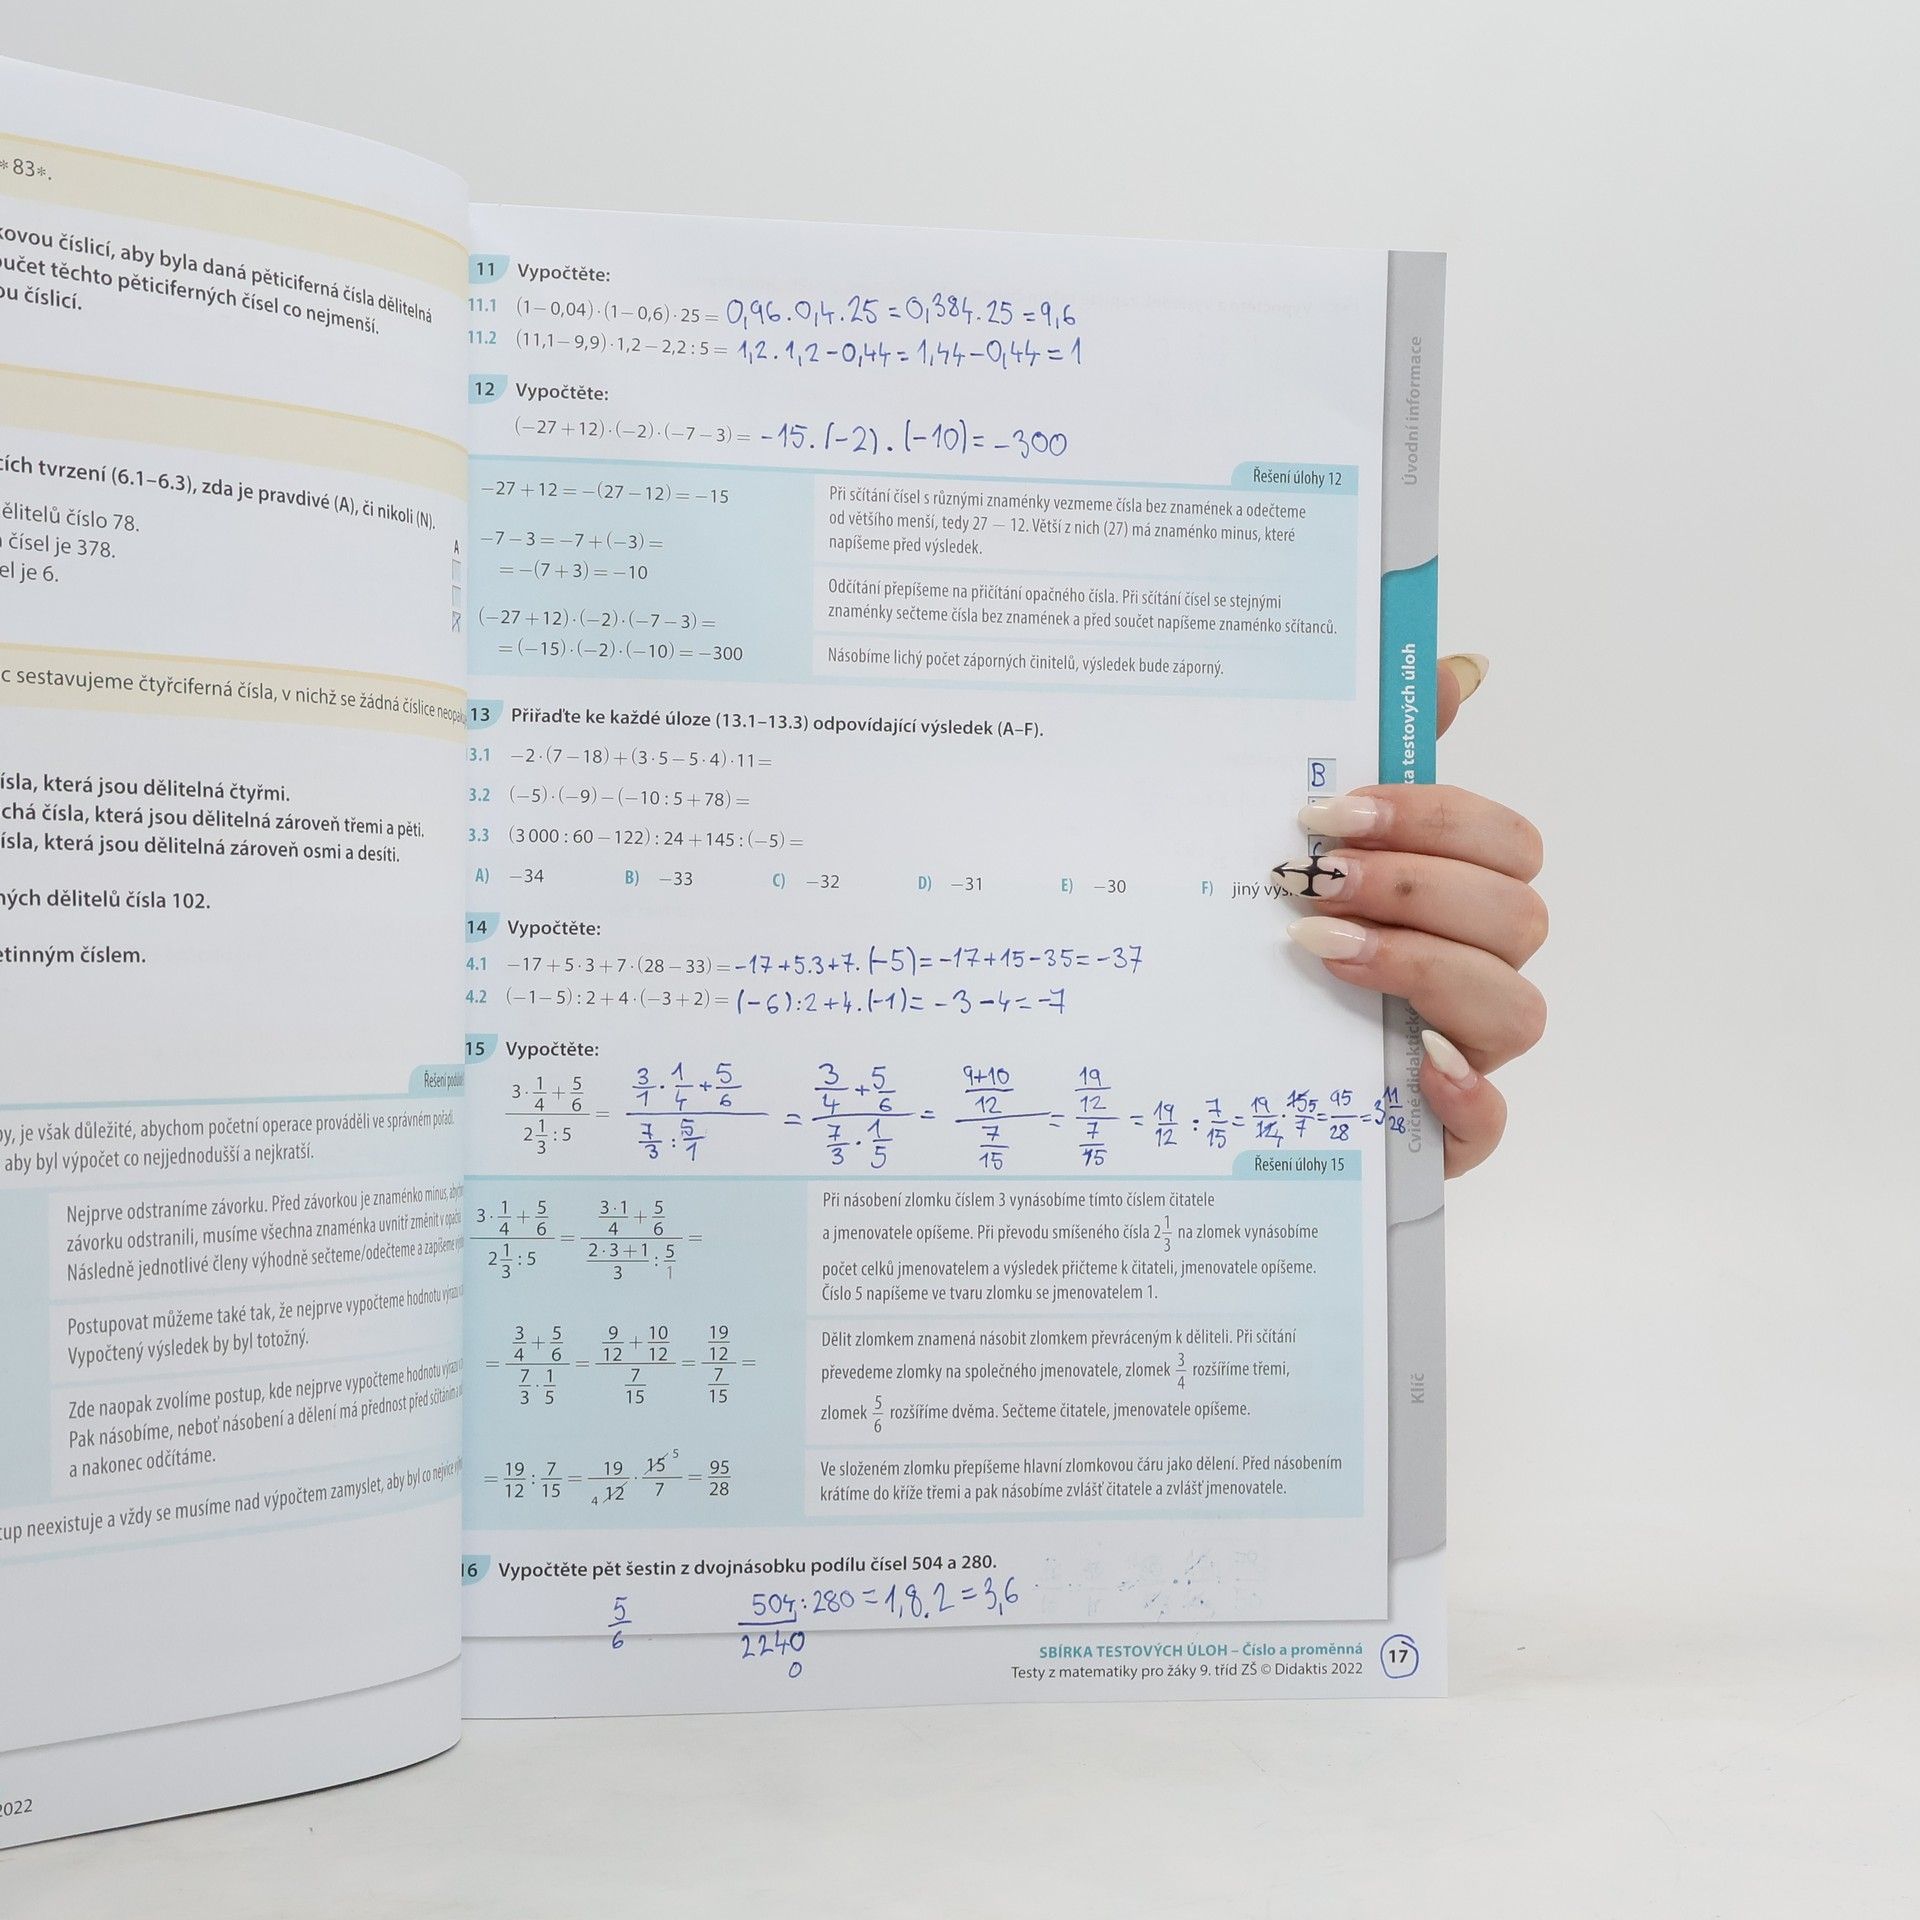 *83*.
kovou číslicí, aby byla daná pěticiferná čísla dělitelná
oučet těchto pěticiferných čísel co nejmenší.
ou číslicí.
cích tvrzení (6.1–6.3), zda je pravdivé (A), či nikoli (N).
ělitelů číslo 78.
čísel je 378.
el je 6.
A
c sestavujeme čtyřciferná čísla, v nichž se žádná číslice
ísla, která jsou dělitelná čtyřmi.
chá čísla, která jsou dělitelná zároveň třemi a pěti.
ísla, která jsou dělitelná zároveň osmi a desíti.
ných dělitelů čísla 102.
etinným číslem.
Řešení
y, je však důležité, abychom početní operace prováděli ve správném pořadí.
aby byl výpočet co nejjednodušší a nejkratší.
Nejprve odstraníme závorku. Před závorkou je znaménko minus,
závorku odstranili, musíme všechna znaménka uvnitř změnit v
Následně jednotlivé členy výhodně sečteme/odečteme a zapíšeme
Postupovat můžeme také tak, že nejprve vypočteme hodnotu
Vypočtený výsledek by byl totožný.
Zde naopak zvolíme postup, kde nejprve vypočteme hodnotu
Pak násobíme, neboť násobení a dělení má přednost před
a nakonec odčítáme.
tup neexistuje a vždy se musíme nad výpočtem zamyslet, aby byl co
2022
11 Vypočtěte:
11.1 (1−0,04)·(1−0,6)·25= 0,96.0,4.25=0,384.25=9,6
11.2 (11,1−9,9)·1,2−2,2:5= 1,2.1,2−0,44=1,44−0,44=1
12 Vypočtěte:
(−27+12)·(−2)·(−7−3)= −15.(−2).(−10)=−300
Řešení úlohy 12
−27+12=−(27−12)=−15
−7−3=−7+(−3)=
=−(7+3)=−10
(−27+12)·(−2)·(−7−3)=
=(−15)·(−2)·(−10)=−300
Při sčítání čísel s různými znaménky vezmeme čísla bez znamének a odečteme
od většího menší, tedy 27 − 12. Větší z nich (27) má znaménko minus, které
napíšeme před výsledek.
Odčítání přepíšeme na přičítání opačného čísla. Při sčítání čísel se stejnými
znaménky sečteme čísla bez znamének a před součet napíšeme znaménko sčítanců.
Násobíme lichý počet záporných činitelů, výsledek bude záporný.
13 Přiřaďte ke každé úloze (13.1–13.3) odpovídající výsledek (A–F).
13.1 −2·(7−18)+(3·5−5·4)·11= B
3.2 (−5)·(−9)−(−10:5+78)=
3.3 (3 000:60−122):24+145:(−5)=
A) −34 B) −33 C) −32 D) −31 E) −30 F) jiný
14 Vypočtěte:
4.1 −17+5·3+7·(28−33)=−17+5.3+7.(−5)=−17+15−35=−37
4.2 (−1−5):2+4·(−3+2)=(−6):2+4.(−1)=−3−4=−7
15 Vypočtěte:
(3·1/4+5/6)/(2 1/3:5) = (3/1·1/4+5/6)/(7/3:5/1) = (3/4+5/6)/(7/3·1/5) = ((9+10)/12)/(7/15) = (19/12)/(7/15) = 19/12 : 7/15 = 19/12 4 · 15 5/7 = 95/28 = 3 11/28
Řešení úlohy 15
(3·1/4+5/6)/(2 1/3:5) = (3·1/4+5/6)/((2·3+1)/3:5/1) =
= (3/4+5/6)/(7/3·1/5) = (9/12+10/12)/(7/15) = (19/12)/(7/15) =
= 19/12 : 7/15 = 19/4 12 · 15 5/7 = 95/28
Při násobení zlomku číslem 3 vynásobíme tímto číslem čitatele
a jmenovatele opíšeme. Při převodu smíšeného čísla 2 1/3 na zlomek vynásobíme
počet celků jmenovatelem a výsledek přičteme k čitateli, jmenovatele opíšeme.
Číslo 5 napíšeme ve tvaru zlomku se jmenovatelem 1.
Dělit zlomkem znamená násobit zlomkem převráceným k děliteli. Při sčítání
převedeme zlomky na společného jmenovatele, zlomek 3/4 rozšíříme třemi,
zlomek 5/6 rozšíříme dvěma. Sečteme čitatele, jmenovatele opíšeme.
Ve složeném zlomku přepíšeme hlavní zlomkovou čáru jako dělení. Před násobením
krátíme do kříže třemi a pak násobíme zvlášť čitatele a zvlášť jmenovatele.
16 Vypočtěte pět šestin z dvojnásobku podílu čísel 504 a 280.
5/6 504:280=1,8.2=3,6
2240
0
SBÍRKA TESTOVÝCH ÚLOH – Číslo a proměnná
Testy z matematiky pro žáky 9. tříd ZŠ © Didaktis 2022
17
Úvodní informace
ka testových úloh
Cvičné didaktické
Klíč